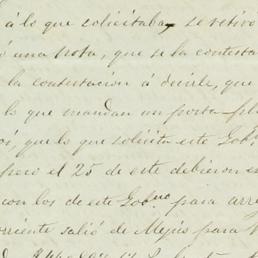 á lo que solicitaba, se retiró
ó una nota, que se la contestar
la contestacion á decirle, que
lo que mandan un porta-plie
os, que lo que solicita este Gob.
pero el 25 de este debieron en
con los de este Gob.no para arre
orriente salió de Mejico para V